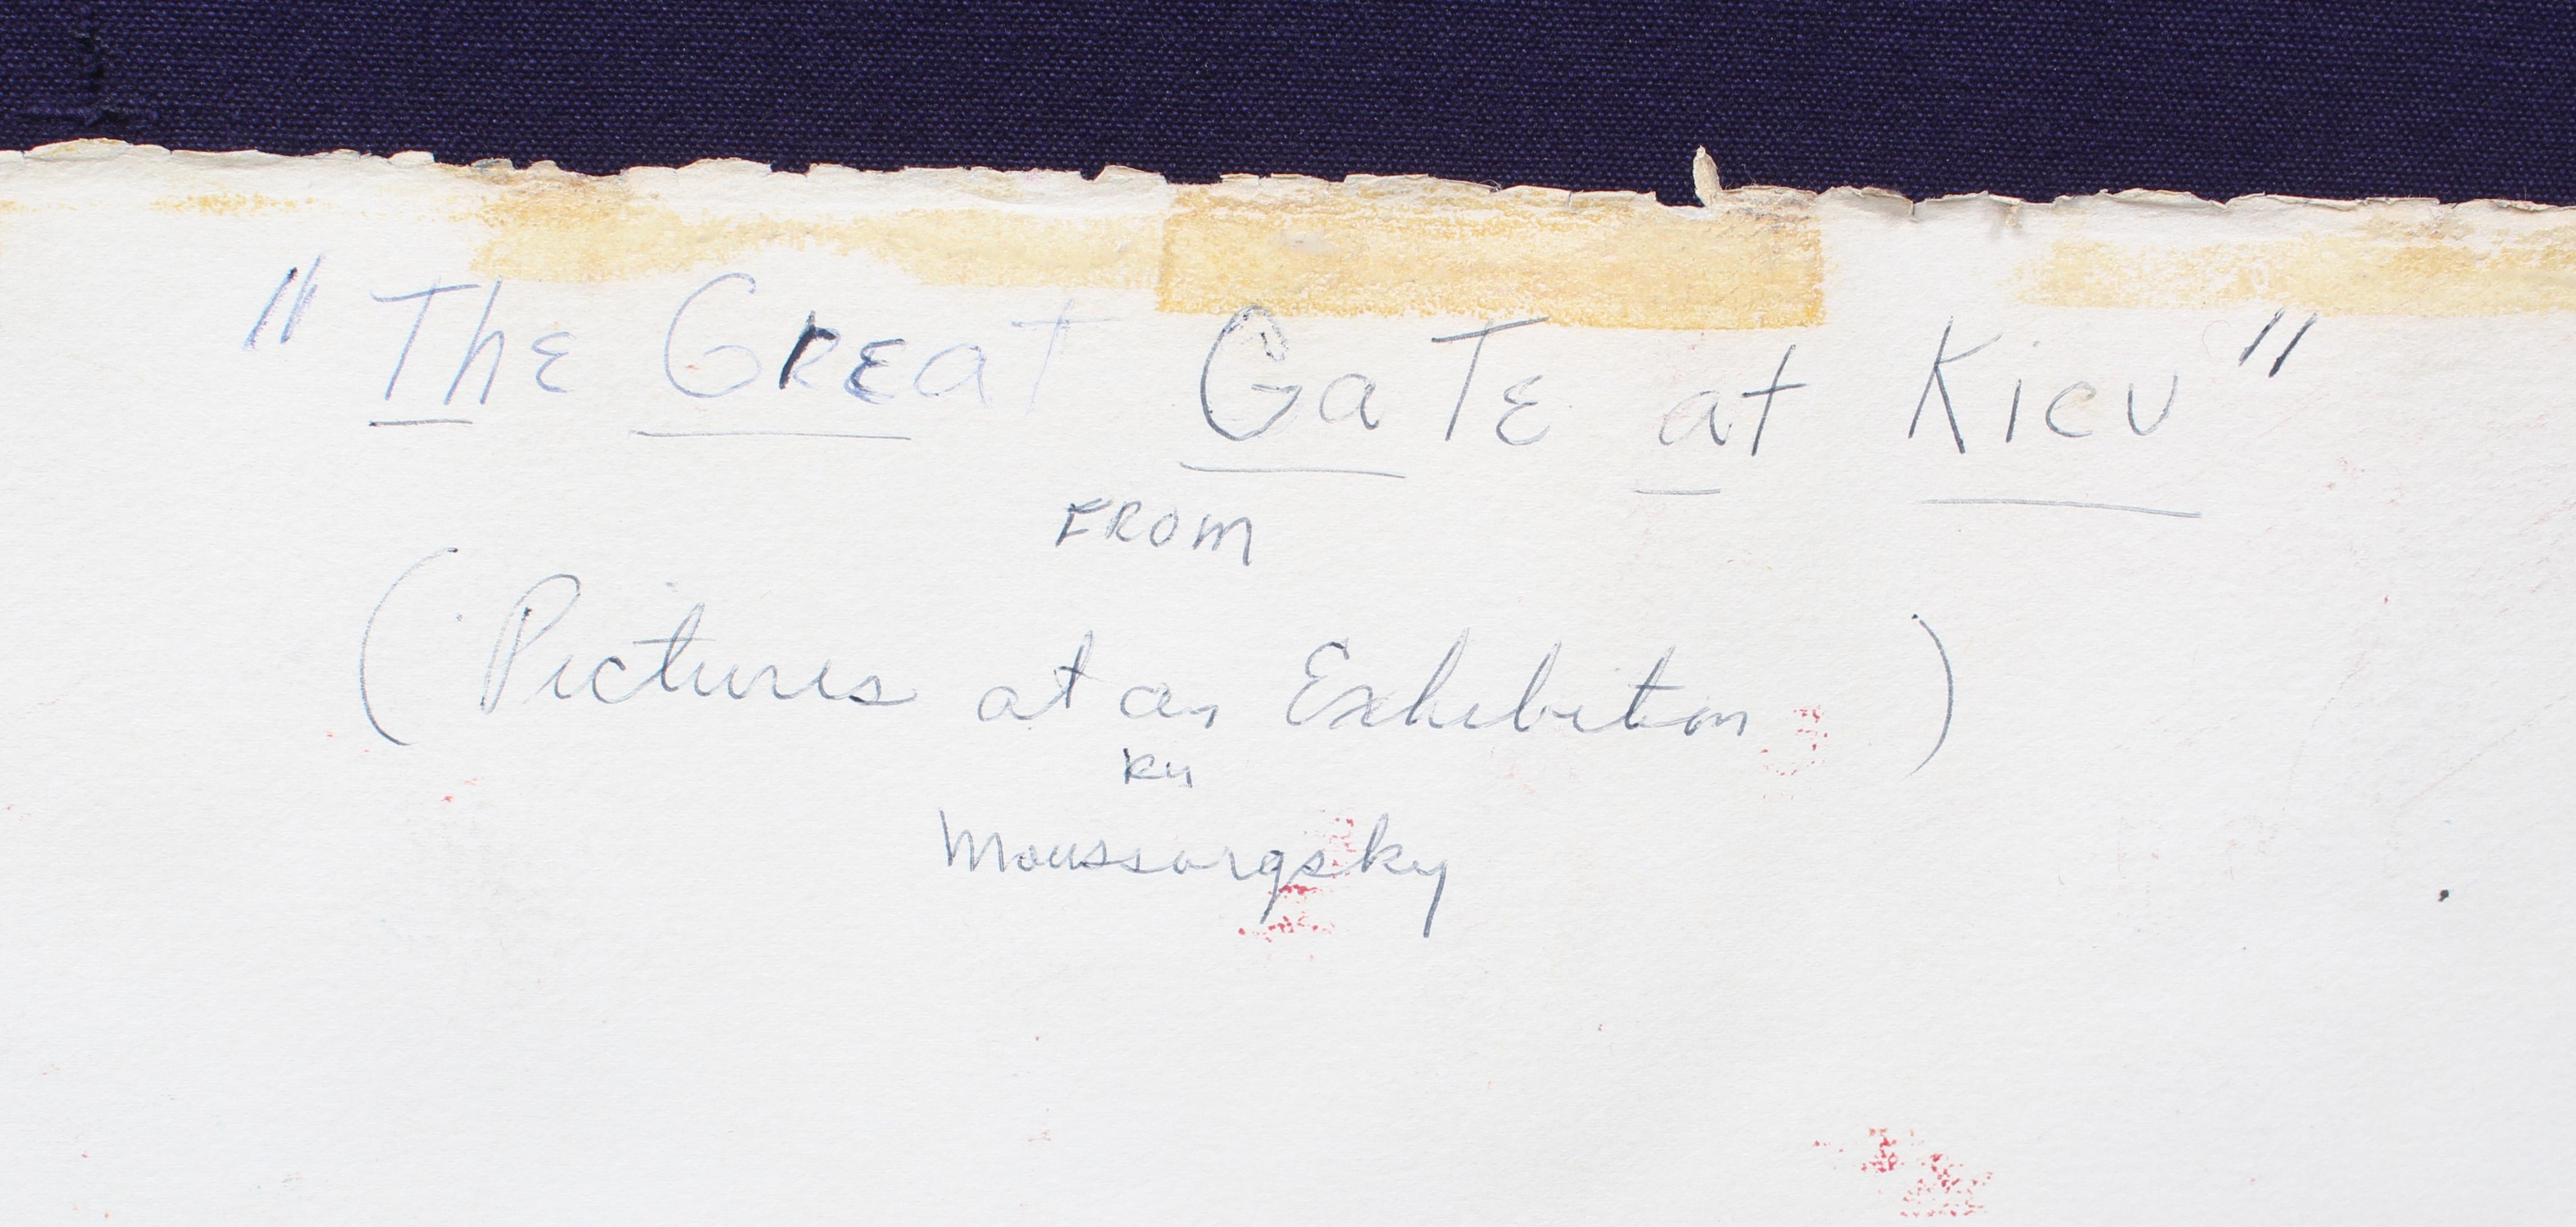 "The Great Gate at Kiev"
FROM
(Pictures at an Exhibition)
By
Moussorgsky